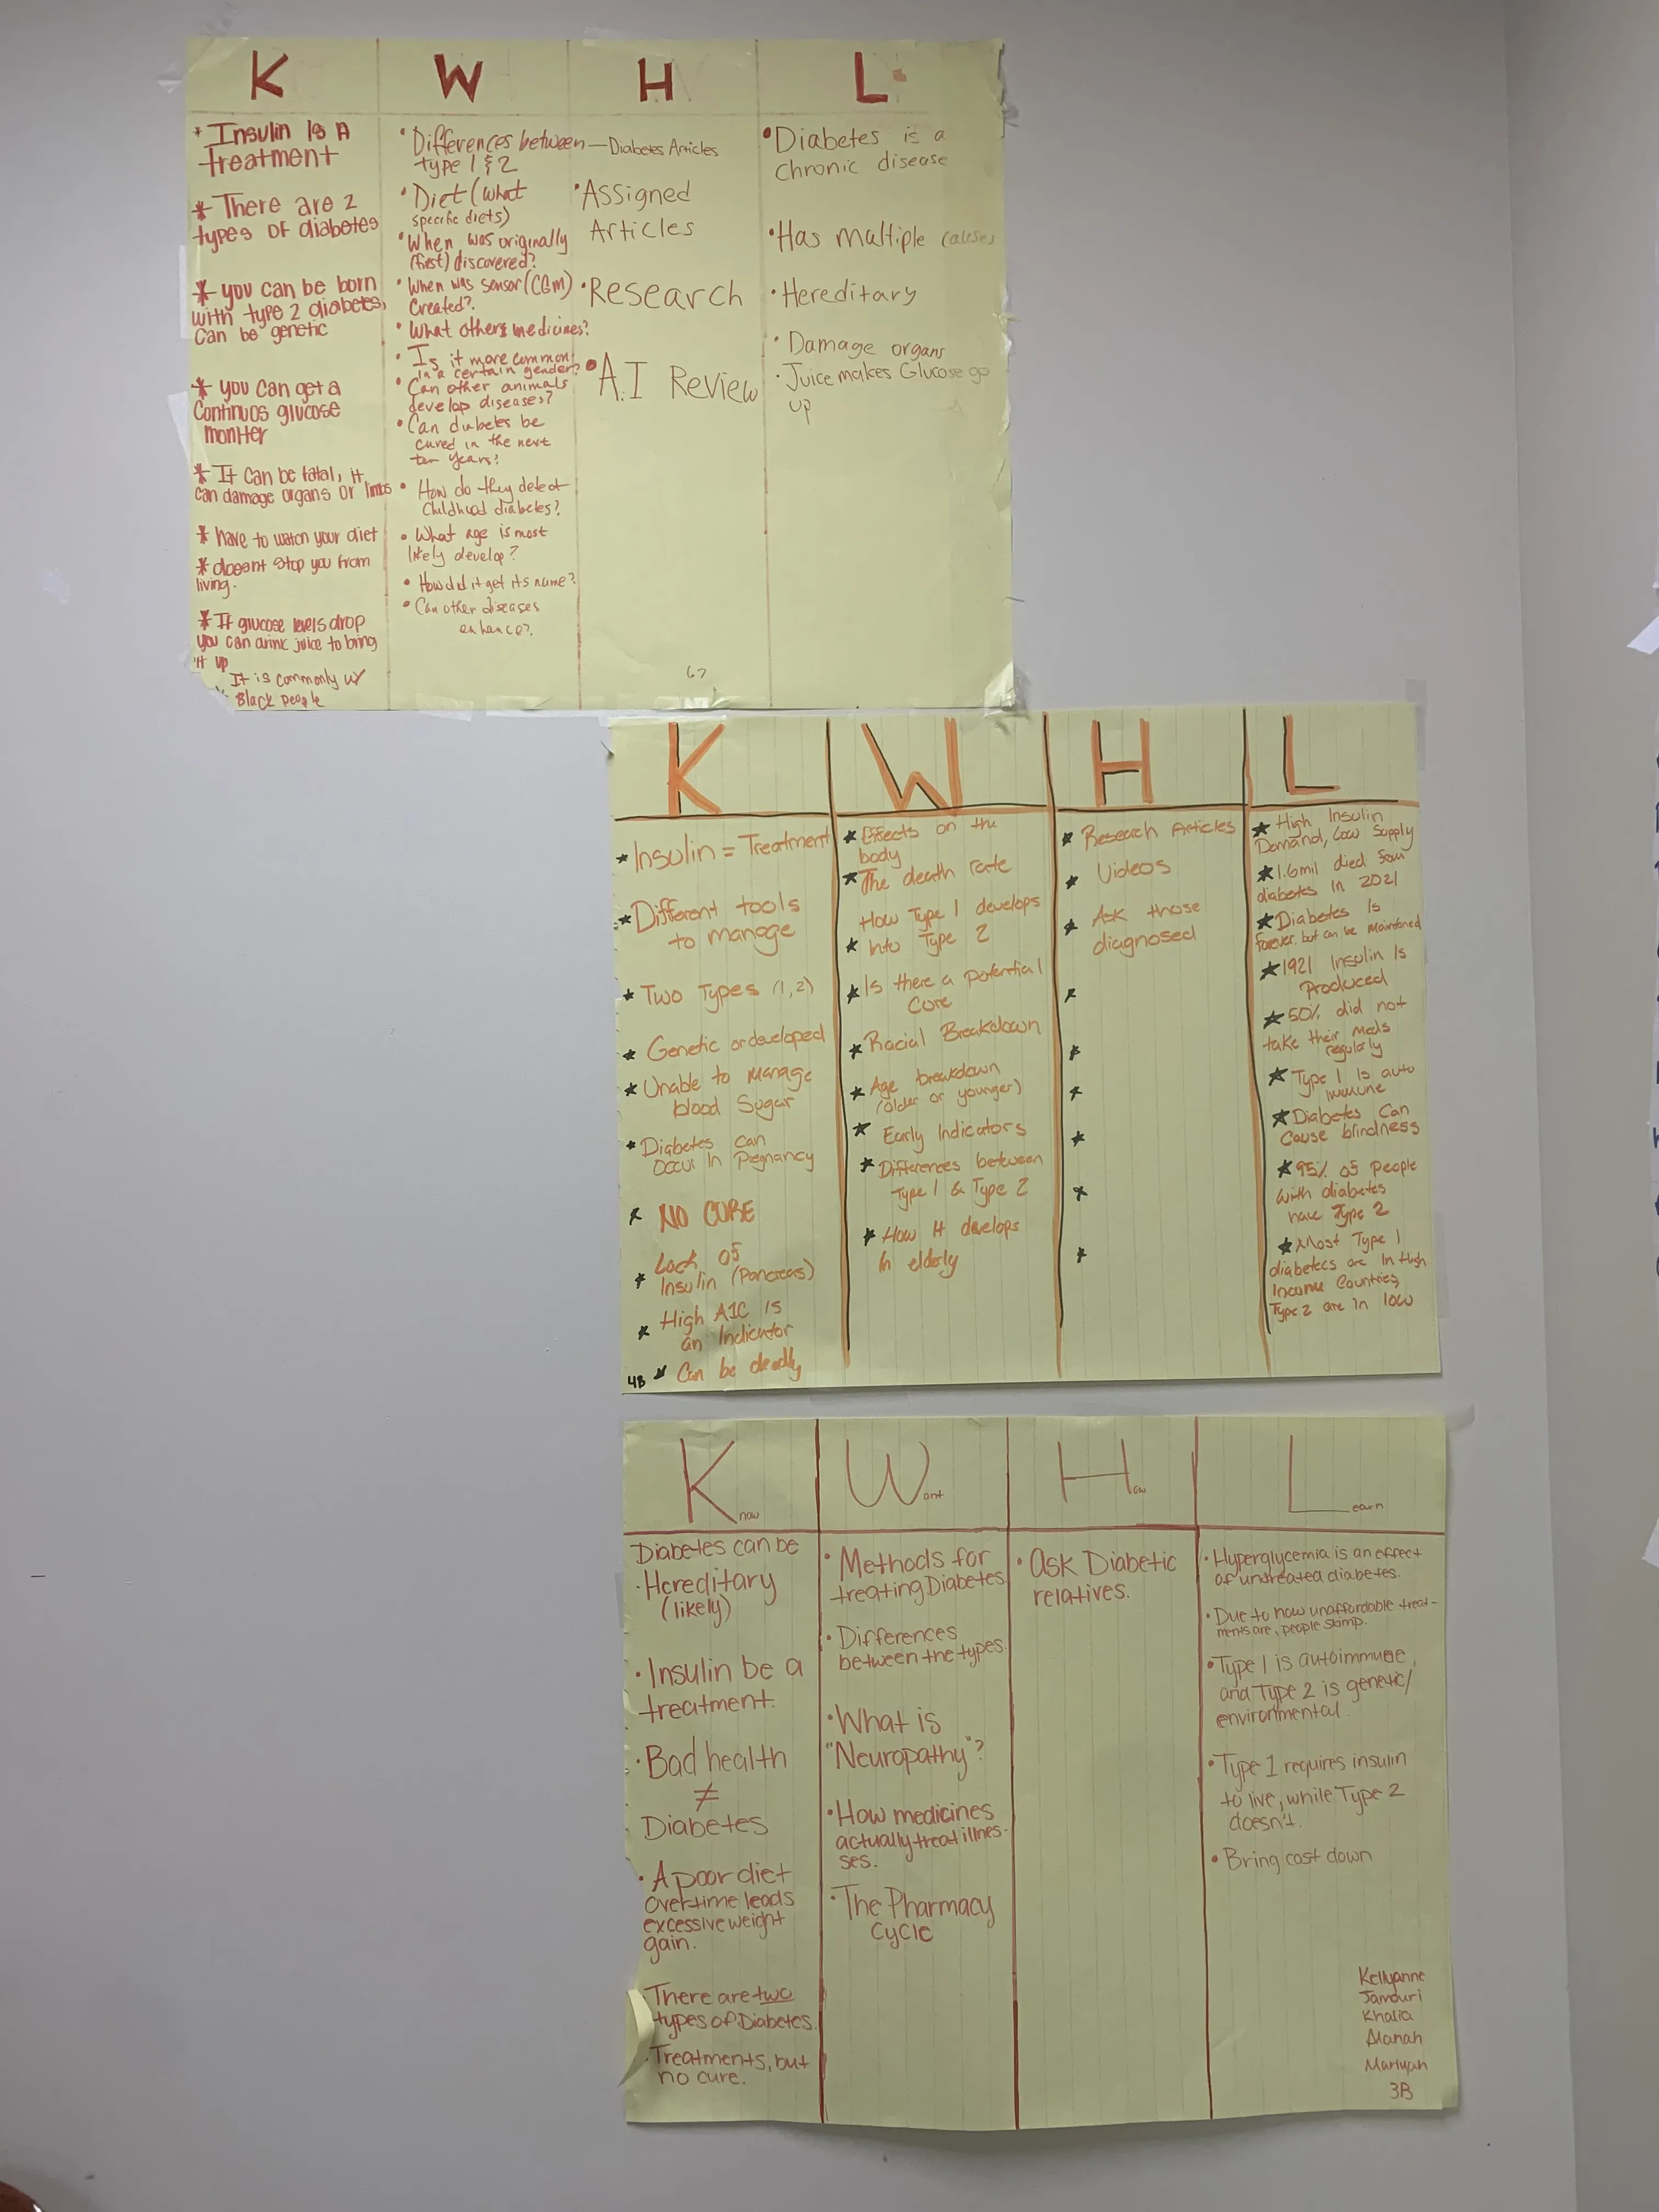 K
* Insulin Is A
treatment
* There are 2
types of diabetes
* you can be born
with type 2 diabetes,
can be genetic
* you can get a
Continuos glucose
moniter
* It can be fatal, it
can damage organs or limbs
* have to watch your diet
* doesnt stop you from
living.
* If glucose levels drop
you can drink juice to bring
it up
It is commonly w/
Black people
W
• Differences between
type 1 & 2
• Diet (what
specific diets)
• When was originally
(first) discovered?
• When was sensor (CGM)
created?
• What others medicines?
• Is it more common
in a certain gender?
• Can other animals
develop diseases?
• Can diabetes be
cured in the next
ten years?
• How do they detect
Childhood diabetes?
• What age is most
likely develop?
• How did it get its name?
• Can other diseases
enhance?
H
— Diabetes Articles
• Assigned
Articles
• Research
• A.I Review
67
L
• Diabetes is a
chronic disease
• Has multiple causes
• Hereditary
• Damage organs
• Juice makes Glucose go
up
K
★ Insulin = Treatment
★ Different tools
to manage
★ Two Types (1,2)
★ Genetic or developed
★ Unable to manage
blood Sugar
★ Diabetes can
occur In Pregnancy
★ NO CURE
★ Lack of
Insulin (Pancreas)
★ High A1C is
an Indicator
★ Can be deadly
4B
W
★ Effects on the
body
★ The death rate
How Type 1 develops
★ Into Type 2
★ Is there a potential
Cure
★ Racial Breakdown
★ Age breakdown
(older or younger)
★ Early Indicators
★ Differences between
Type 1 & Type 2
★ How it develops
In elderly
H
★ Research Articles
★ Videos
★ Ask those
diagnosed
L
★ High Insulin
Demand, Low Supply
★ 1.6mil died from
diabetes in 2021
★ Diabetes Is
forever, but can be maintained
★ 1921 Insulin Is
Produced
★ 50% did not
take their meds
regularly
★ Type 1 Is auto
immune
★ Diabetes Can
Cause blindness
★ 95% of people
with diabetes
have Type 2
★ Most Type 1
diabetecs are In High
Income Countries,
Type 2 are in low
Know
Diabetes can be
• Hereditary
(likely)
• Insulin be a
treatment.
• Bad health
≠
Diabetes
• A poor diet
over time leads
excessive weight
gain.
There are two
types of Diabetes.
Treatments, but
no cure.
Want
• Methods for
treating Diabetes
• Differences
between the types.
• What is
"Neuropathy"?
• How medicines
actually treat illnes-
ses.
• The Pharmacy
Cycle
How
• Ask Diabetic
relatives.
Learn
• Hyperglycemia is an effect
of untreated diabetes.
• Due to how unaffordable treat-
ments are, people skimp.
• Type 1 is autoimmune,
and Type 2 is genetic/
environmental.
• Type 1 requires insulin
to live, while Type 2
doesn't.
• Bring cost down
Kellyanne
Jamouri
Khalia
Alanah
Mariyah
3B